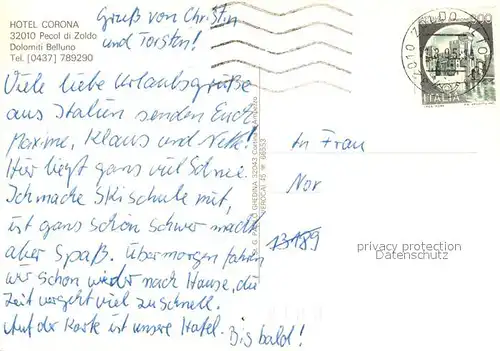 HOTEL CORONA
32010 Pecol di Zoldo
Dolomiti Belluno
Tel. (0437) 789290
Gruß von Christin
und Torsten!
Viele liebe Urlaubsgrüße
aus Italien senden Euch
Maxime, Klaus und Nelle!
Hier liegt ganz viel Schnee.
Ich mache Skischule mit,
ist ganz schön schwer macht
aber Spaß. Übermorgen fahren
wir schon wieder nach Hause, die
Zeit vergeht viel zu schnell.
Auf der Karte ist unsere Hotel. Bis bald!
32010 ZOLDO
ITALIA
In Frau
Nor
13189
privacy protection
Datenschutz